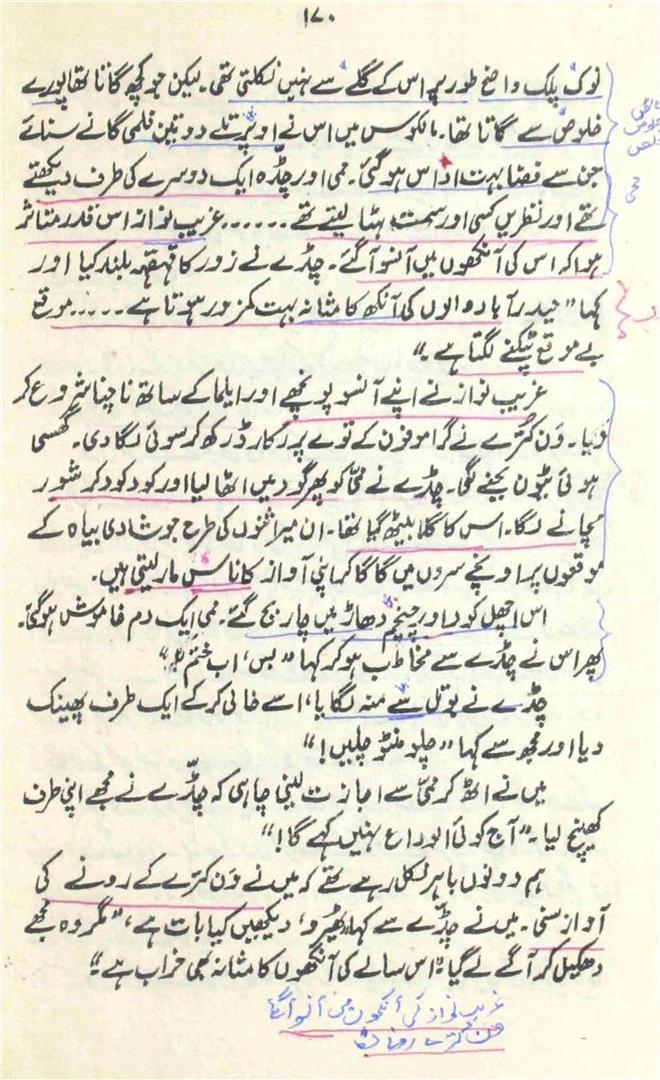 ۱۷۰
نوک پلک واضح طور پر اس کے گلے سے نہیں نکلتی تھی۔ لیکن جو کچھ گاتا تھا پورے
خلوص سے گاتا تھا۔ مالکوس میں اس نے اوپر تلے دو تین فلمی گانے سنائے
جن سے فضا بہت اداس ہوگئی۔ ممی اور چڈہ ایک دوسرے کی طرف دیکھتے
تھے اور نظریں کسی اور سمت ہٹا لیتے تھے۔۔۔۔۔۔ غریب نواز اس قدر متاثر
ہوا کہ اس کی آنکھوں میں آنسو آگئے۔ چڈے نے زور کا قہقہہ بلند کیا اور
کہا "حیدرآباد والوں کی آنکھ کا مثانہ بہت کمزور ہوتا ہے۔۔۔۔۔ موقع
بے موقع ٹپکنے لگتا ہے۔"
غریب نواز نے اپنے آنسو پونچھے اور ایلما کے ساتھ ناچنا شروع کر
دیا۔ ون کترے نے گراموفون کے توے پر رکارڈ رکھ کر سوئی لگا دی۔ گھسی
ہوئی ٹیون بجنے لگی۔ چڈے نے ممی کو پھر گود میں اٹھا لیا اور کود کود کر شور
مچانے لگا۔ اس کا گلا بیٹھ گیا تھا۔ ان میراثنوں کی طرح جو شادی بیاہ کے
موقعوں پر اونچے سروں میں گا گا کر اپنی آواز کا ناس مار لیتی ہیں۔
اس اچھل کود اور چیخم دھاڑ میں چار بج گئے۔ ممی ایک دم خاموش ہوگئی۔
پھر اس نے چڈے سے مخاطب ہو کر کہا "بس، اب ختم!"
چڈے نے بوتل سے منہ لگایا، اسے خالی کر کے ایک طرف پھینک
دیا اور مجھ سے کہا "چلو منٹو چلیں!"
میں نے اٹھ کر ممی سے اجازت لینی چاہی کہ چڈے نے مجھے اپنی طرف
کھینچ لیا۔ "آج کوئی الوداع نہیں کہے گا!"
ہم دونوں باہر نکل رہے تھے کہ میں نے ون کترے کے رونے کی
آواز سنی۔ میں نے چڈے سے کہا "ٹھیرو، دیکھیں کیا بات ہے،" مگر وہ مجھے
دھکیل کر آگے لے گیا "اس سالے کی آنکھوں کا مثانہ بھی خراب ہے۔"
غریب نواز کی آنکھوں میں آنسو آگئے